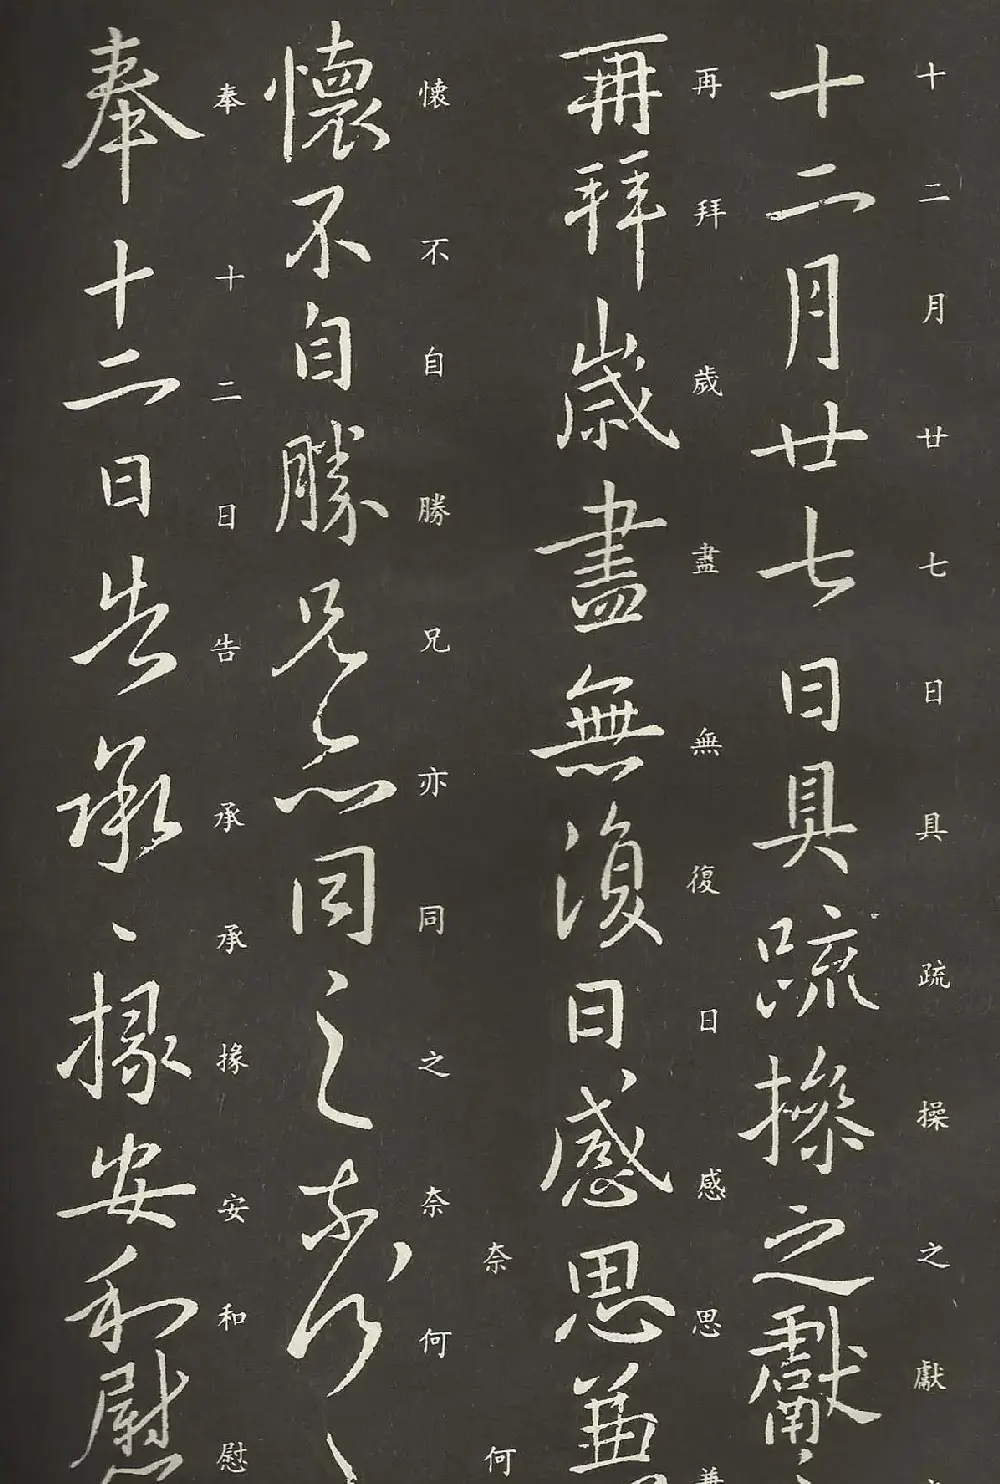 十二月廿七日具疏操之獻
十二月廿七日具疏操之獻
再拜歲盡無復日感思兼
再拜歲盡無復日感思兼
奈何
懷不自勝兄亦同之奈何
懷不自勝兄亦同之奈何
奉十二日告承承掾安和慰
奉十二日告承〻掾安和慰